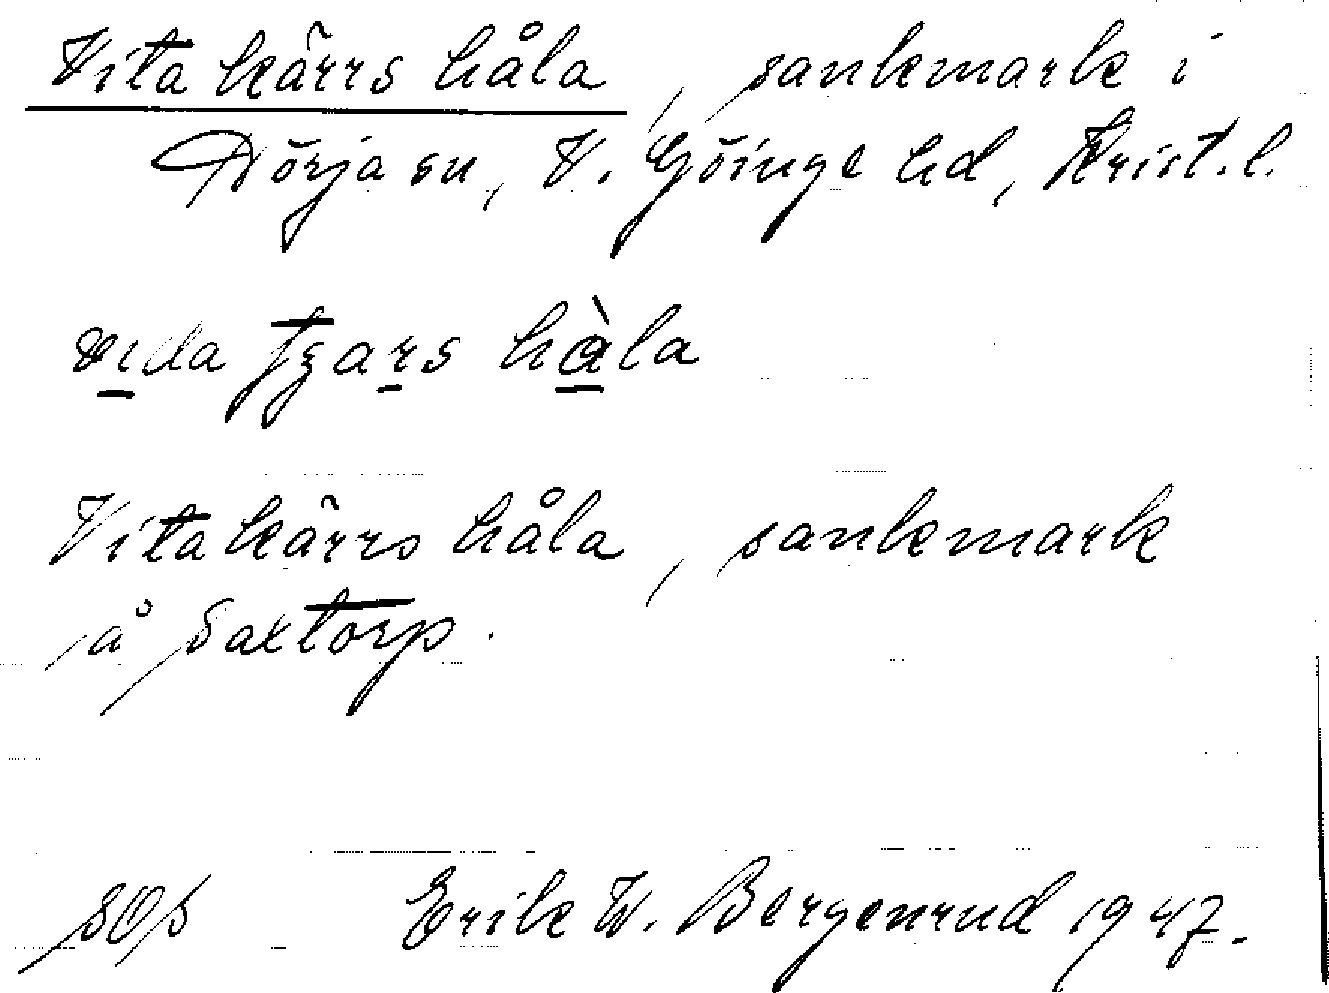 Vita kärrs håla, sankmark i
Dörja sn, V. Göinge hd, Krist. l.
vida tʒars hàla
Vita kärrs håla, sankmark
å Saxtorp.
SOS Erik W. Bergenrud 1947.